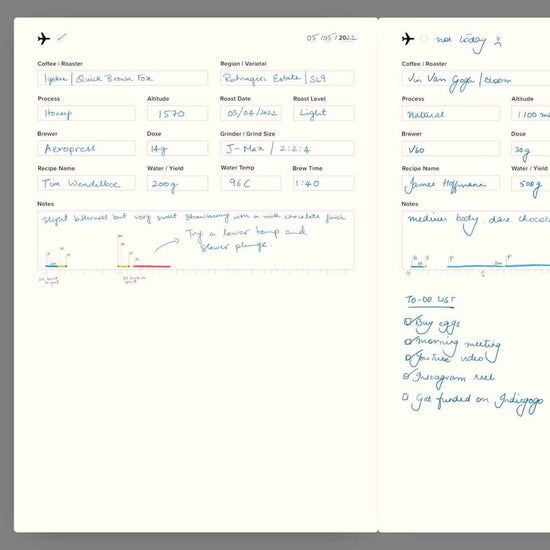 05/05/2022
Coffee | Roaster
Region | Varietal
Iyoku | Quick Brown Fox
Ratnagiri Estate | SL9
Process
Altitude
Roast Date
Roast Level
Honey
1570
05/04/2022
Light
Brewer
Dose
Grinder / Grind Size
Aeropress
14g
J-Max / 2:2:4
Recipe Name
Water / Yield
Water Temp
Brew Time
Tim Wendelboe
200g
96C
1:40
Notes
Slight bitterness but very sweet strawberry with a milk chocolate finish
Try a lower temp and
slower plunge.
not today
Coffee | Roaster
Van Gogh | Gloom
Process
Altitude
Natural
1100
Brewer
Dose
V60
30g
Recipe Name
Water / Yield
James Hoffmann
500g
Notes
medium body, dark
TO-DO LIST
Buy eggs
Morning meeting
YouTube video
Instagram reel
Get funded on Indiegogo